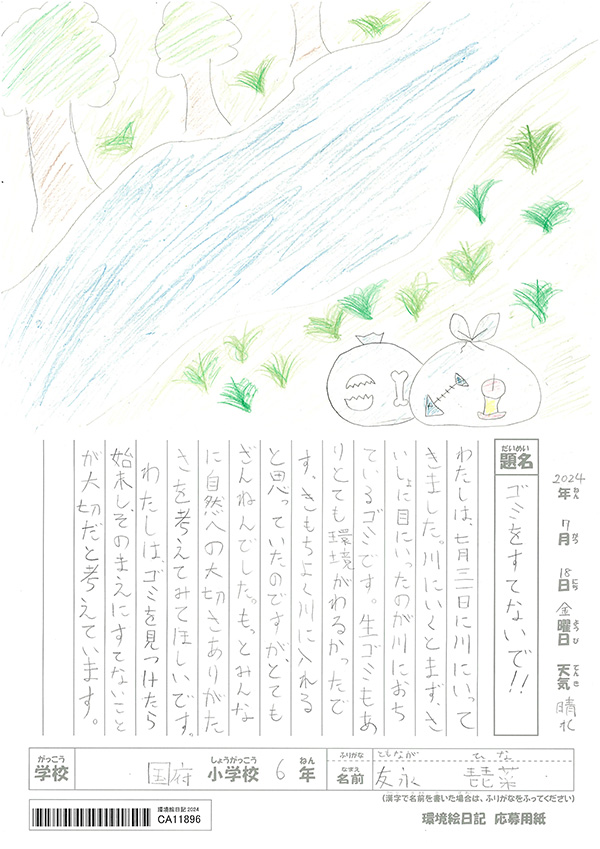 2024年 7月 18日 金曜日 天気 晴れ
ねん がつ にち ようび てんき
だいめい
題名
ゴミをすてないで!!
わたしは、七月三一日に川にいって
きました。川にいくとまず、さ
いしょに目にいったのが川におち
ているゴミです。生ゴミもあ
りとても環境がわるかったで
す。きもちよく川に入れる
と思っていたのですが、とても
ざんねんでした。もっとみんな
に自然への大切さ、ありがた
さを考えてみてほしいです。
わたしは、ゴミを見つけたら
始末し、そのまえにすてないこと
が大切だと考えています。
がっこう しょうがっこう ねん
学校 国府 小学校 6年
ふりがな ともなが
なまえ
名前 友永 琵菜
(漢字で名前を書いた場合は、ふりがなをふってください)
環境絵日記 2024
CA11896
環境絵日記 応募用紙